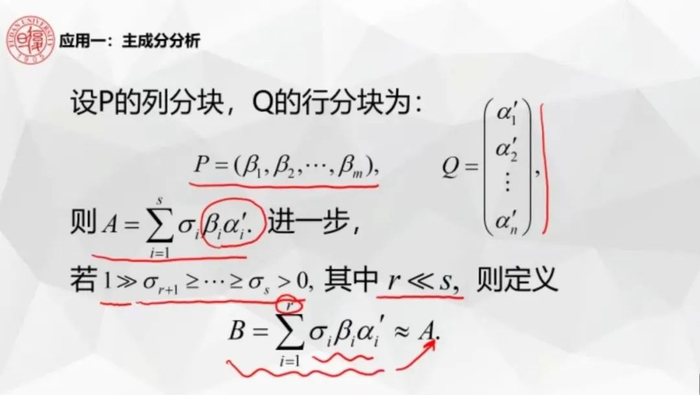 应用一：主成分分析
设P的列分块，Q的行分块为：
P = (β₁, β₂, ⋯, βₘ), Q = (α₁′ α₂′ ⋮ αₙ′),
则 A = ∑ᵢ₌₁ˢ σᵢβᵢαᵢ′. 进一步，
若 1 ≫ σᵣ₊₁ ≥ ⋯ ≥ σₛ > 0, 其中 r ≪ s, 则定义
B = ∑ᵢ₌₁ʳ σᵢβᵢαᵢ′ ≈ A.